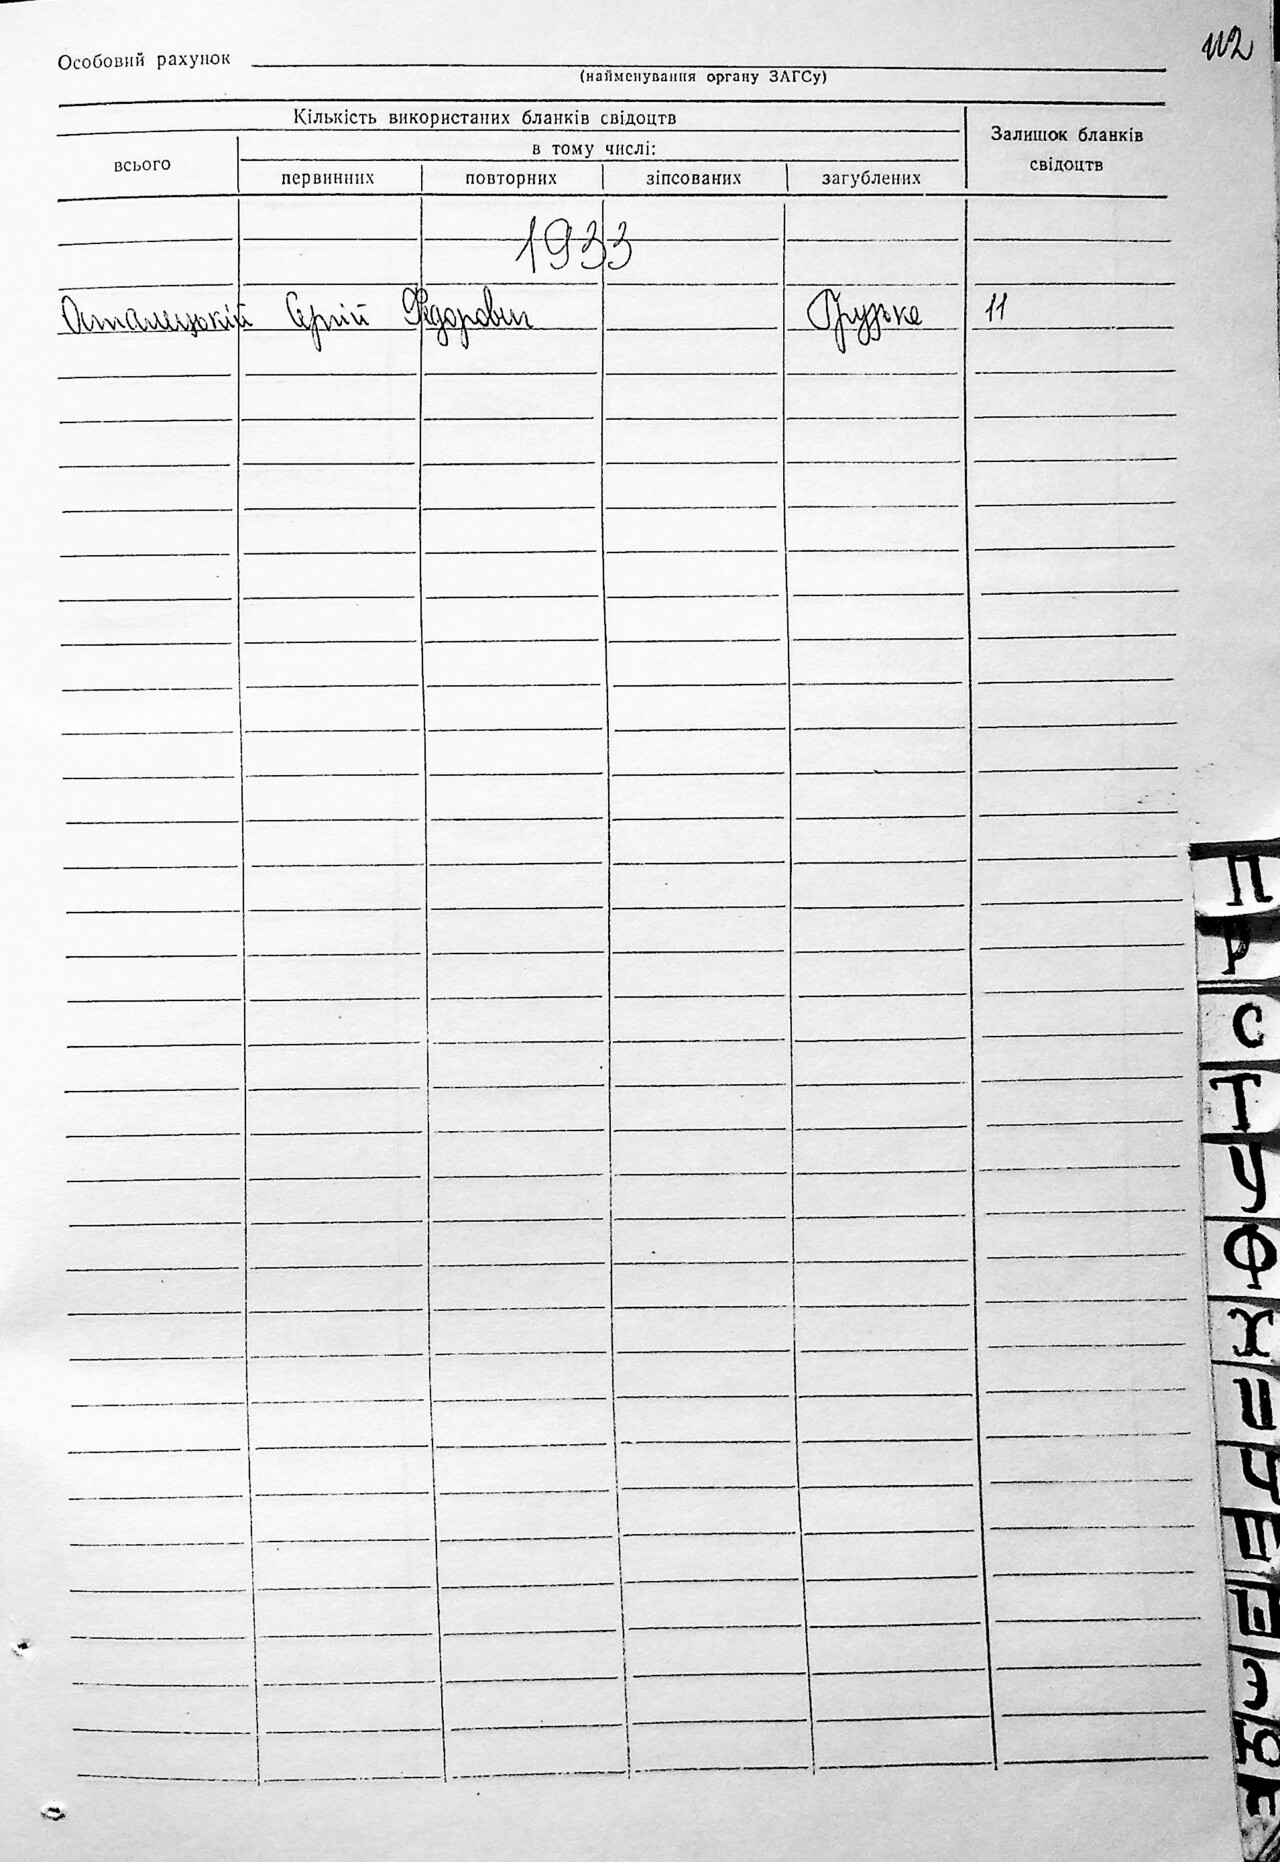 112
Особовий рахунок
(найменування органу ЗАГСу)
Кількість використаних бланків свідоцтв
Залишок бланків свідоцтв
всього
в тому числі:
первинних повторних зіпсованих загублених
1933
Осталецькій Сергій Федорович Грузьке 11
П
Р
С
Т
У
Ф
Х
Ц
Ч
Ш